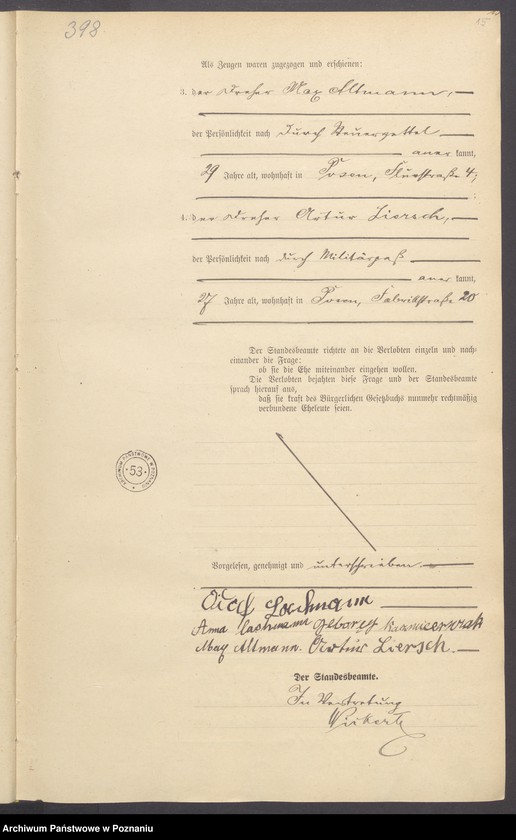 398
15
Als Zeugen waren zugezogen und erschienen:
3. der Dreher Max Altmann,
der Persönlichkeit nach durch Steuerzettel
anerkannt,
29 Jahre alt, wohnhaft in Posen, Flurstraße 4;
4. der Dreher Artur Liersch,
der Persönlichkeit nach durch Militärpaß
anerkannt,
27 Jahre alt, wohnhaft in Posen, Fabrikstraße 20
Der Standesbeamte richtete an die Verlobten einzeln und nach-
einander die Frage:
ob sie die Ehe miteinander eingehen wollen.
Die Verlobten bejahten diese Frage und der Standesbeamte
sprach hierauf aus,
daß sie kraft des Bürgerlichen Gesetzbuchs nunmehr rechtmäßig
verbundene Eheleute seien.
ARCHIWUM PAŃSTWOWE W POZNANIU
53
Vorgelesen, genehmigt und unterschrieben.
Lachmann
Anna Lachmann geborene Kazmierczak
Max Altmann. Artur Liersch.
Der Standesbeamte.
In Vertretung
Archiwum Państwowe w Poznaniu